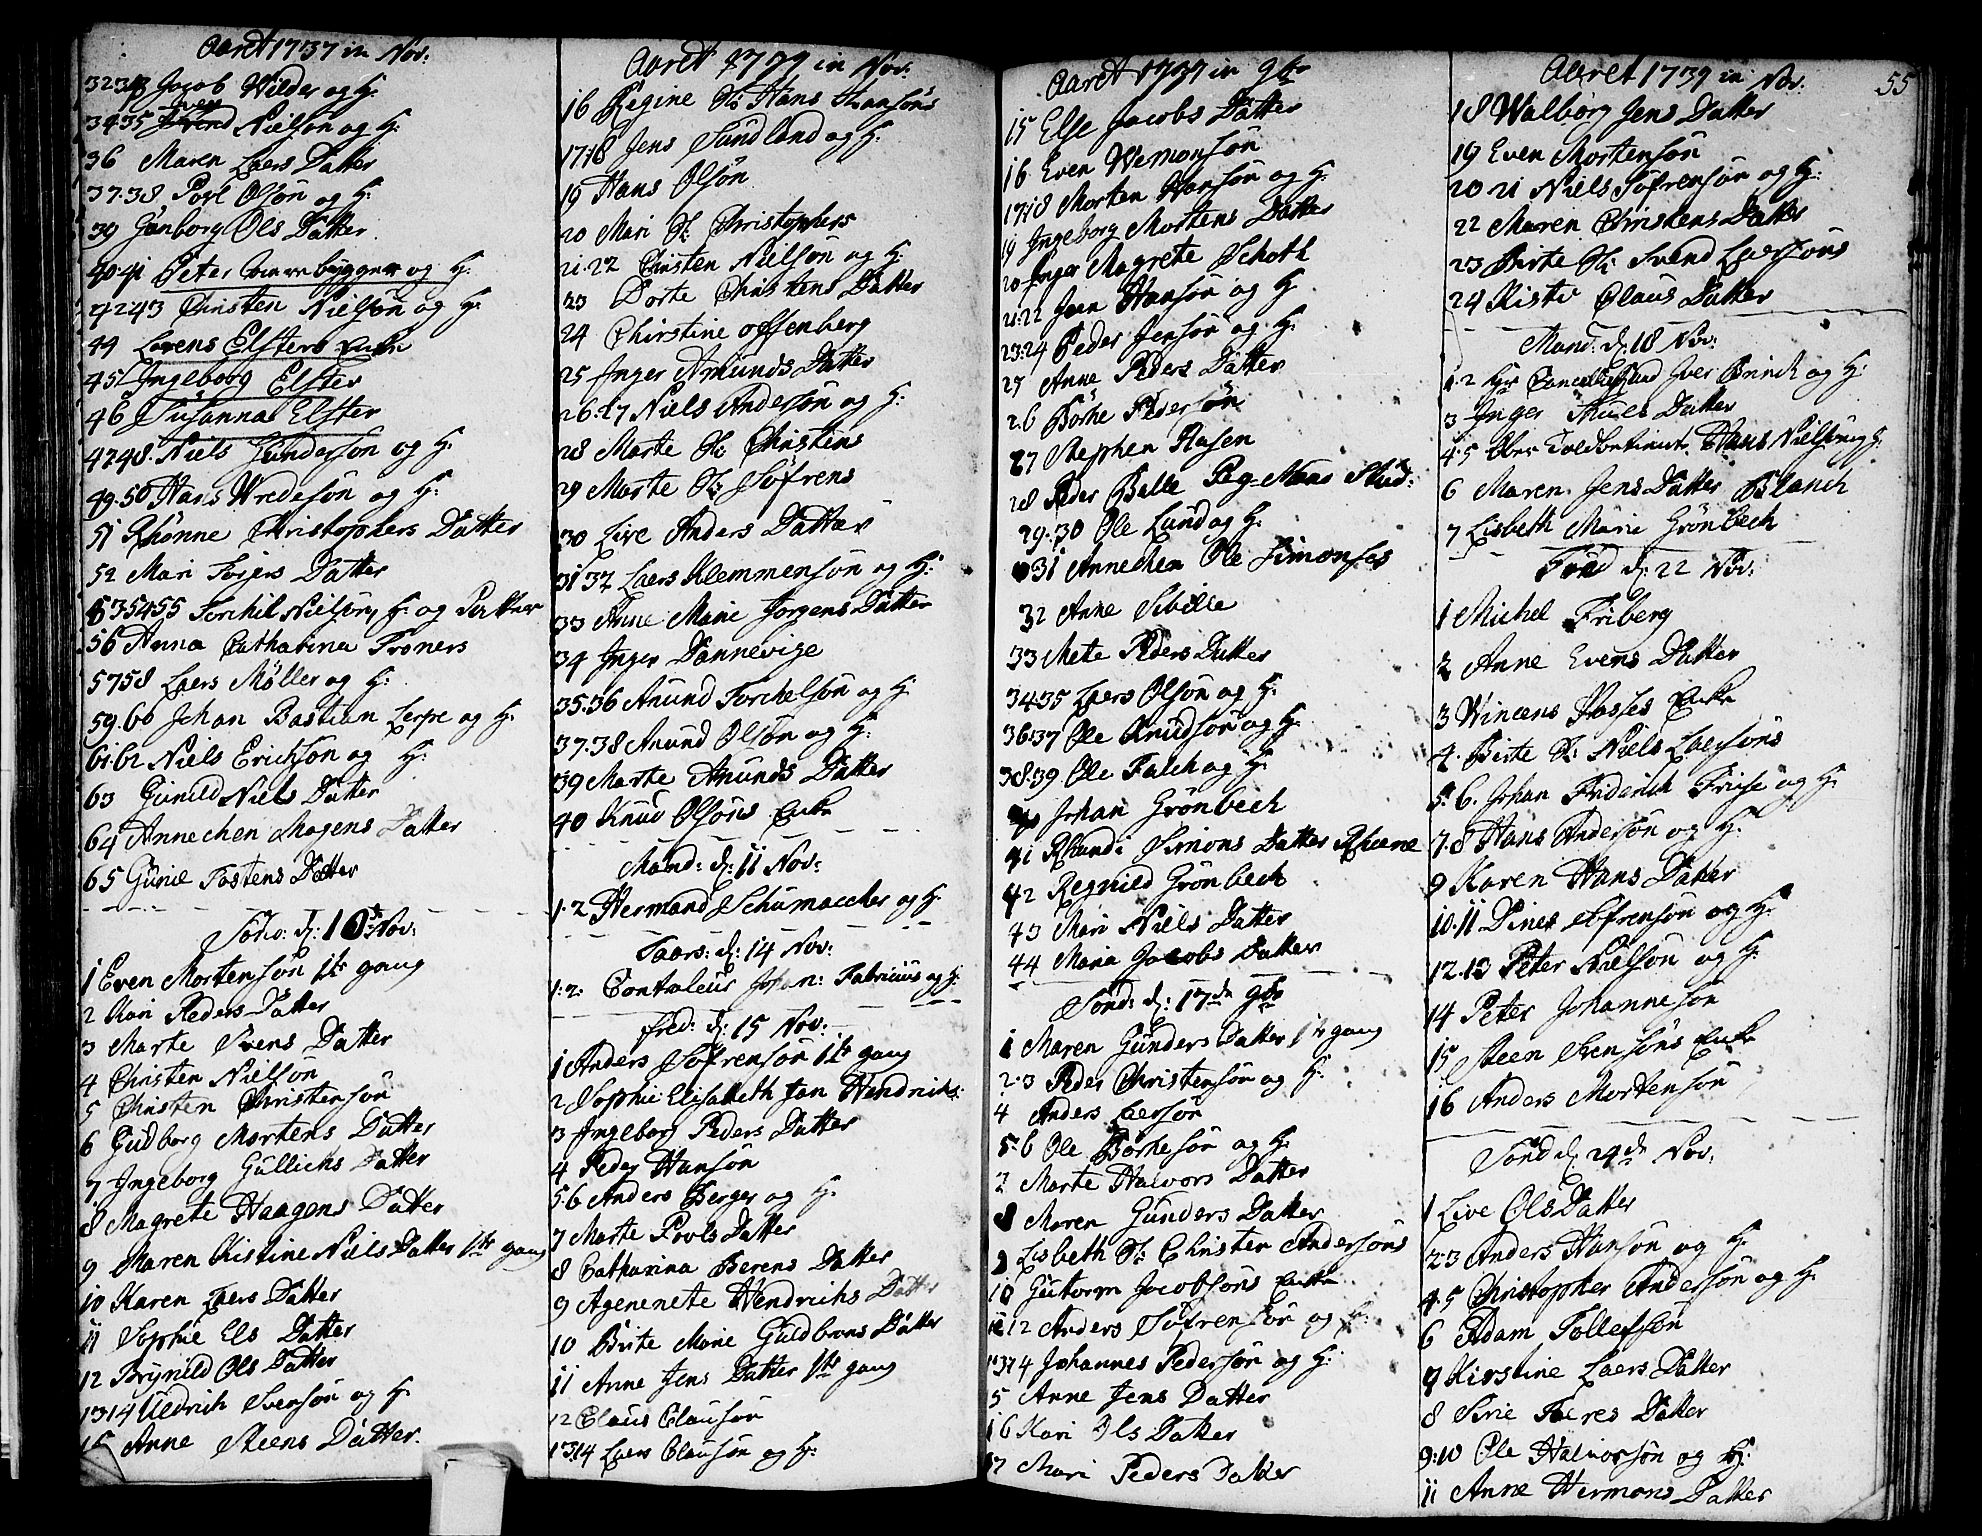 Aaret 1737 in Nov:
32 33 Jacob Wilder og H:
34 35 Iver Nielsøn og H:
36 Maren Laers Datter
37.38, Povl Olsøn og H:
39 Gunborg Ols Datter
40.41 Peter bygger og H:
42 43 Christen Nielsøn og H:
44 Lorens Elsters Enke
45 Ingeborg Elster
46 Susanna Elster
47 48. Niels Gundersøn og H:
49.50 Hans Wredesøn og H:
51 Rhonne Christophers Datter
52 Mari Torjers Datter
53 54 55 Torchil Nielsøn, H: og Datter
56 Anna Catharina Troners
57 58 Laers Møller og H:
59.60 Johan Bastian Lerpe og H:
61.62 Niels Ericksøn og H:
63 Gunild Niels Datter
64 Annechen Mogens Datter
65 Gunie Tostens Datter
Sønd: d: 10de Nov:
1 Even Mortensøn 1te gang
2 Kari Peders Datter
3 Marte Svens Datter
4 Christen Nielsøn
5 Christen Christensøn
6 Gudborg Mortens Datter
7 Ingeborg Gullichs Datter
8 Magrete Haagens Datter
9 Maren Kistine Niels Datter 1te gang
10 Karen Laers Datter
11 Sophie Els Datter
12 Brynild Ols Datter
13 14 Uldrich Svensøn og H:
15 Anne Steens Datter.
Aaret 1739 in Nov:
16 Regine St: Hans Hansøns
17 18 Jens Sundland og H:
19 Hans Olsøn
20 Mari St: Christophers
21.22 Christen Nielsøn og H:
23 Dorte Christens Datter
24 Chirstine Offenberg
25 Inger Amunds Datter
26.27 Niels Andersøn og H:
28 Marte St: Christens
29 Marte St: Søfrens
30 Live Anders Datter
31 32 Laers Klemmensøn og H:
33 Anne Marie Jørgens Datter
34 Inger Dannevige
35.36 Anund Torchelsøn og H:
37.38 Anund Olsøn og H:
39 Marte Anunds Datter
40 Knud Olsøns Enke
Mand: d: 11 Nov:
1.2 Hermand Schumaccher og H:
Taars: d: 14 Nov:
1.2. Contraleur Johan: Fabricius og H:
Fred: d: 15 Nov:
1 Anders Søfrensøn 1te gang
2 Sophie Elisabeth Jan Hendrichs:
3 Ingeborg Peders Datter
4 Peder Hansøn
5.6 Anders Berger og H:
7 Marte Povls Datter
8 Catharina Berens Datter
9 Agenenete Hendrichs Datter
10 Birte Marie Guldbrans Datter
11 Anne Jens Datter 1te gang
12 Claus Clausøn
13.14 Laers Clausøn og H:
Aaret 1737 in 9br
15 Else Jacobs Datter
16 Even Wemonsøn
17 18 Morten Hansøn og H:
19 Ingeborg Mortens Datter
20 Inger Magrete Schoth
21.22 Jven Hansøn og H:
23.24 Peder Jensøn og H:
25 Anne Peders Datter
26 Børhe Pedersøn
27 Stephen Hasen
28 Peder Balle Stud:
29.30 Ole Lund og H:
31 Annechen Ole Simonses
32 Anne Sibille
33 Mete Peders Datter
34 35 Laers Olsøn og H:
36 37 Ole Knudsøn og H:
38.39 Ole Falch og H:
40 Johan Grønbech
41 Simons Datter
42 Regnild Grønbech
43 Mari Niels Datter
44 Maria Jacobs Datter
Sønd: d: 17de 9br
1 Maren Gunders Datter 1te gang
2.3 Peder Christensøn og H:
4 Anders Larsøn
5.6 Ole Børhesøn og H:
7 Marte Halvors Datter
8 Maren Gunders Datter
9 Lisbeth St: Christen Andersøns
10 Gutorm Jacobsøns Enke
11 12 Anders Søfrensøn og H:
13 14 Johannes Pedersøn og H:
5 Anne Jens Datter
16 Kari Ols Datter
17 Mari Peders Datter
Aaret 1739 in Nov. 55
18 Walborg Jens Datter
19 Even Mortensøn
20 21 Niels Søfrensøn og H:
22 Maren Christens Datter
23 Birte St: Svend Laersøns
24 Kiste Claus Datter
Mand: d: 18 Nov:
1.2 Hr Iver Brinch og H:
3 Inger Datter
4.5 Hans Nielsen og H:
6 Maren Jens Datter Blanch
7 Lisbeth Marie Grønbech
Fred d: 22 Nov:
1 Michel Friberg
2 Anne Evens Datter
3 Wincens Posses Enke
4. Birte St: Niels Laersøns
5.6. Johan Friderich Friise og H:
7.8 Hans Andersøn og H:
9 Karen Hans Datter
10.11 Dines Søfrensøn og H:
12.13 Peter Nielsøn og H:
14 Peter Johannesøn
15 Steen Svensøns Enke
16 Anders Mortensøn
Sønd d: 24de Nov:
1 Live Ols Datter
2.3 Anders Hansøn og H:
4.5 Christopher Andersøn og H:
6 Adam Tollefsøn
7 Kirstine Laers Datter
8 Sirie Toeres Datter
9.10 Ole Halvorsøn og H:
11 Anne Hermans Datter